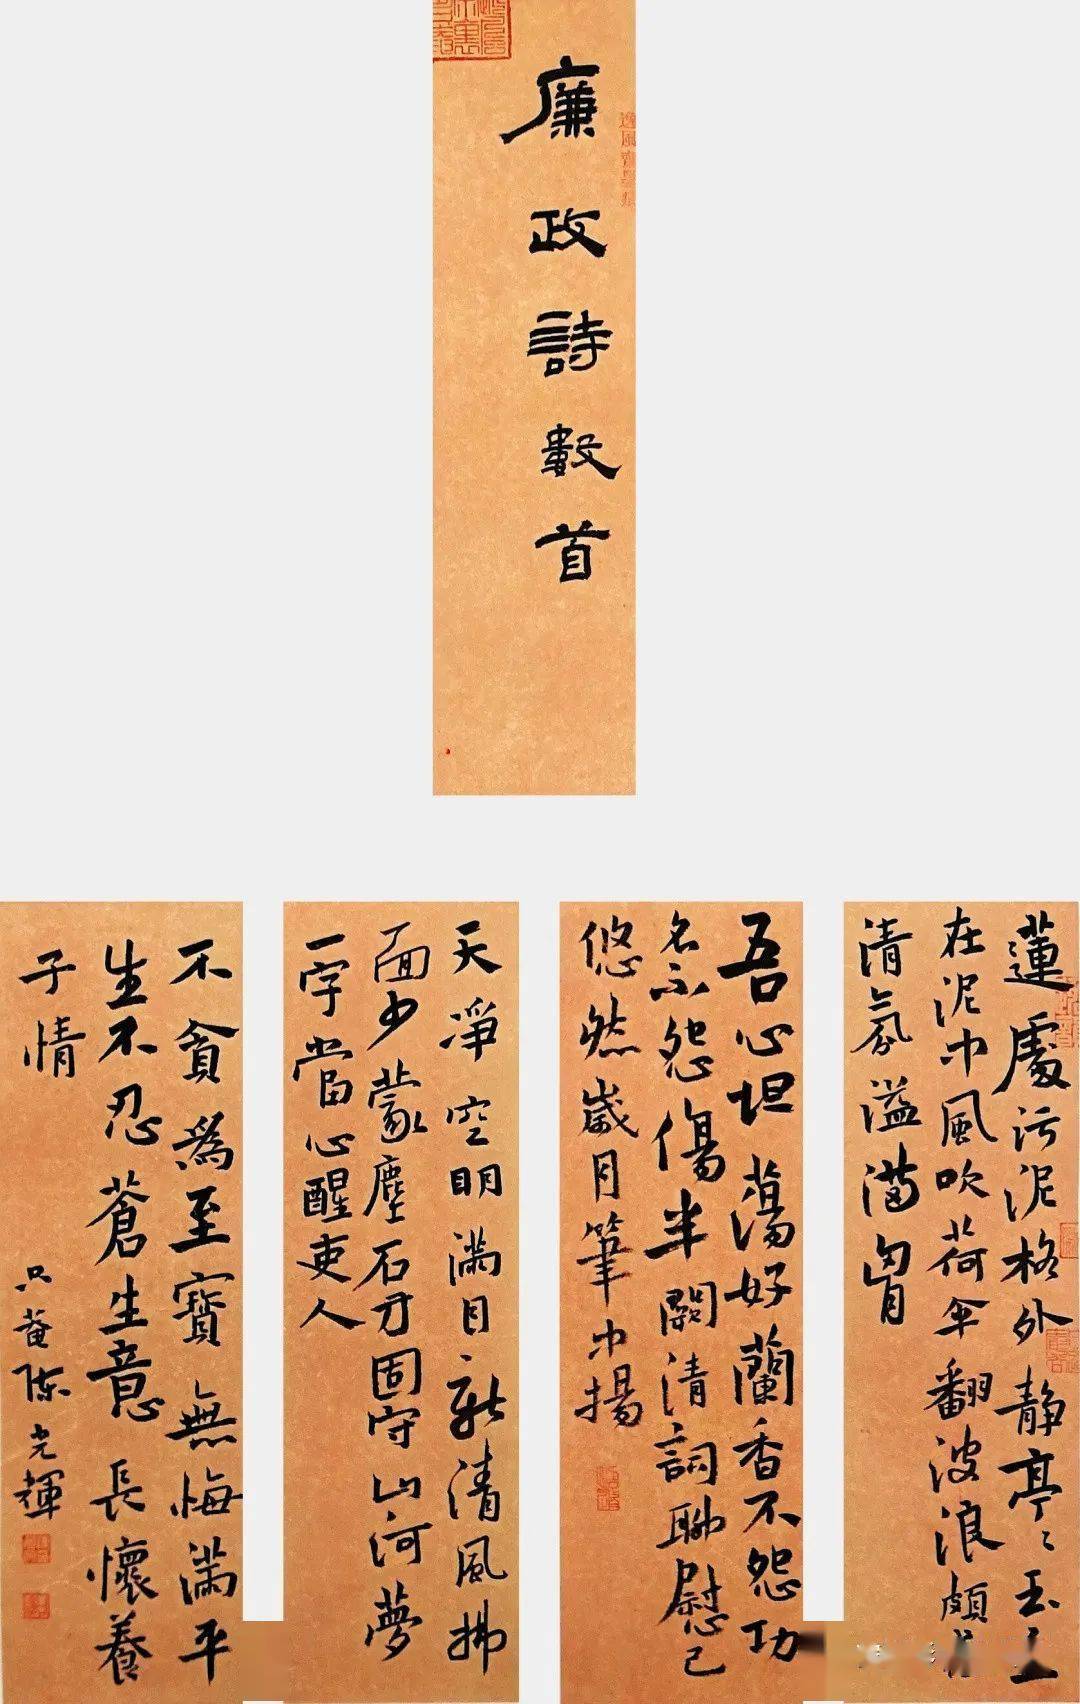 廉政詩數首
蓮處污泥格外静亭〻玉立
在泥中風吹荷傘翻波浪頗
清氛溢満胷
吾心坦蕩好蘭香不怨功
名不怨傷半闋清詞聊慰己
悠然歲月筆中揚
天凈空明滿目新清風拂
面少蒙塵石方固守山河夢
一字當心醒吏人
不貪為至寶無悔滿平
生不忍蒼生意長懷養
子情
只菴陳光輝